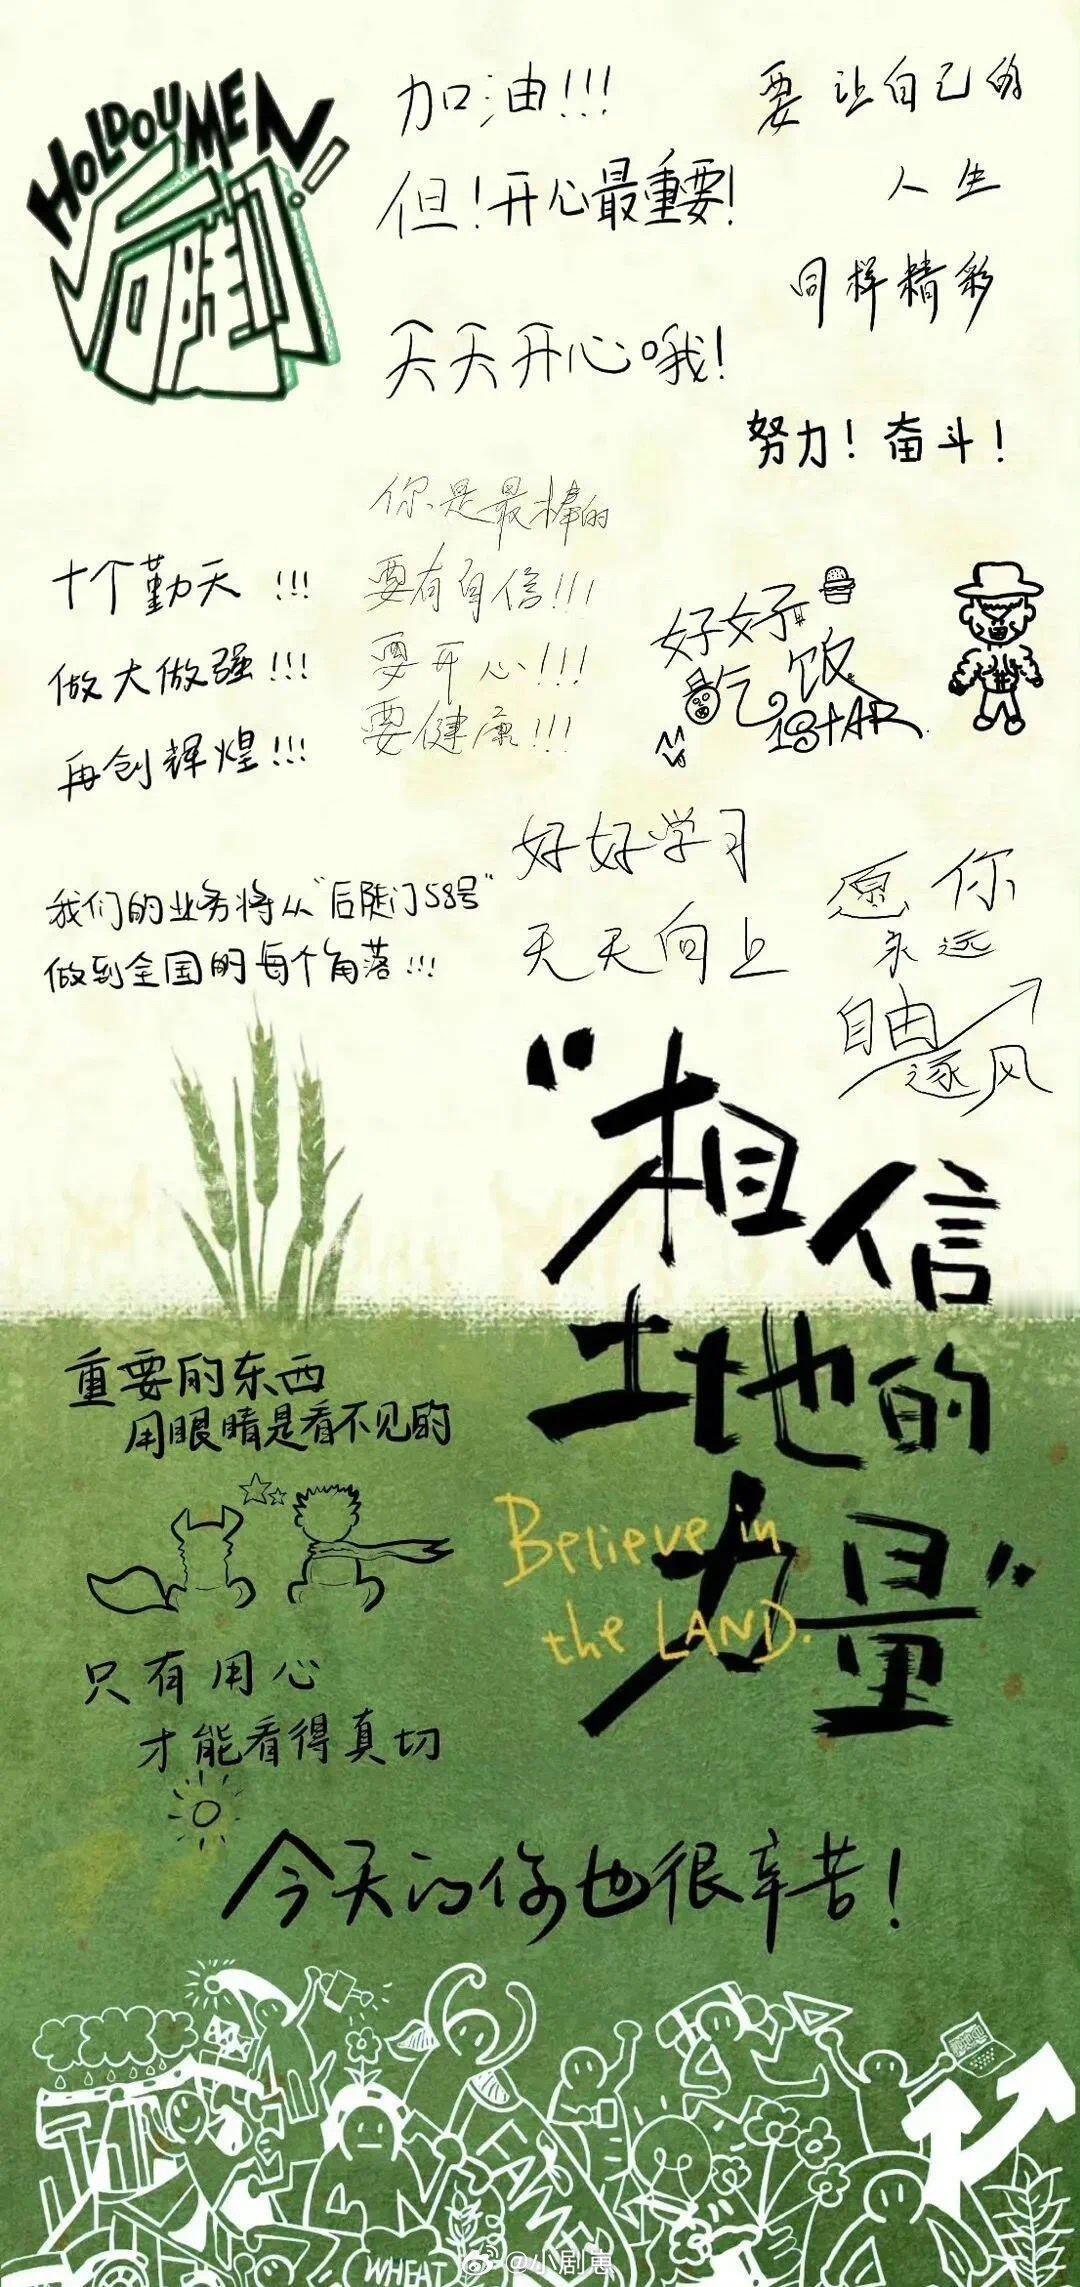 HOLDOUMEN!
后陡门
加油!!!
但!开心最重要!
天天开心哦!
要让自己的
人生
同样精彩
努力!奋斗!
十个勤天!!!
做大做强!!!
再创辉煌!!!
你是最棒的
要有自信!!!
要开心!!!
要健康!!!
好好
吃饭
1STAR
我们的业务将从“后陡门58号”
做到全国的每个角落!!!
好好学习
天天向上
愿你
永远
自由
逐风
“相信
土地的
力量”
Believe in
the LAND.
重要的东西
用眼睛是看不见的
只有用心
才能看得真切
今天的你也很辛苦!
WHEAT
@小剧崽